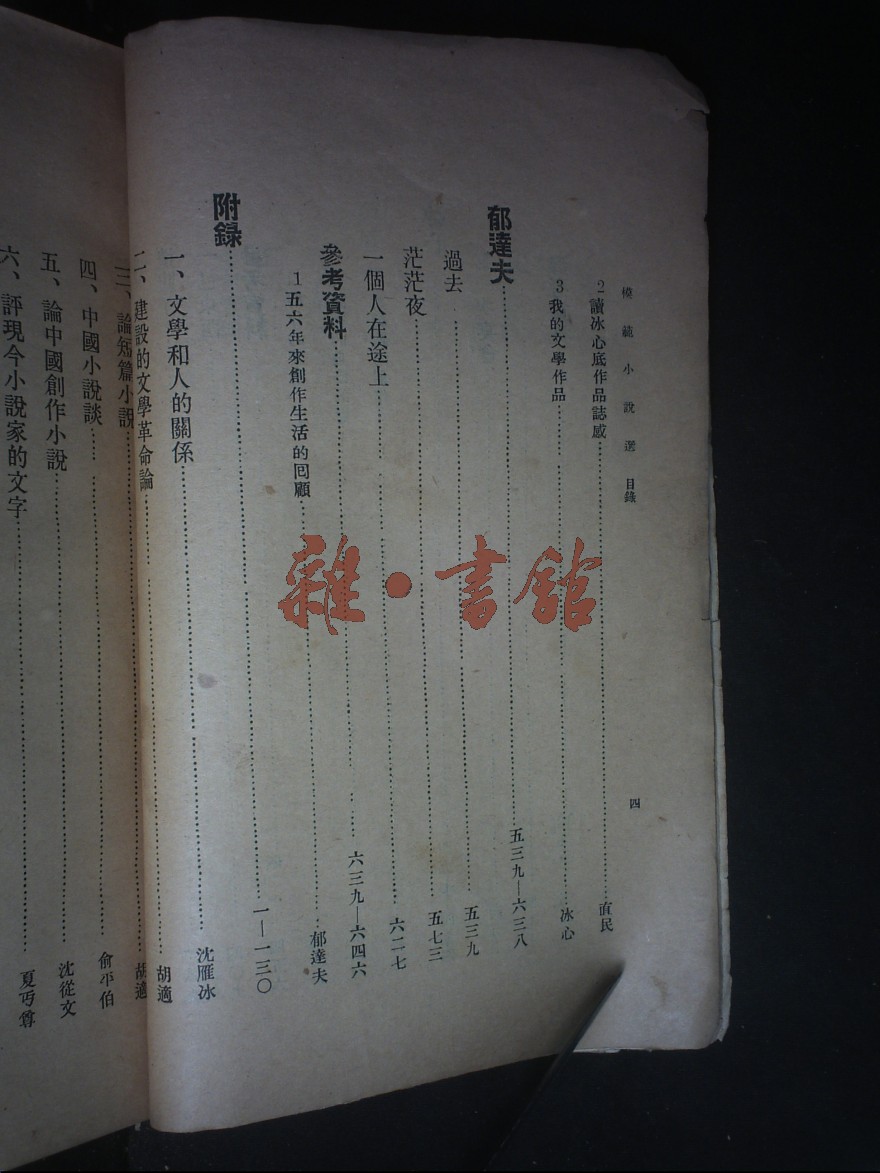 模範小說選 目錄 四
2 讀冰心底作品誌感……直民
3 我的文學作品……冰心
郁達夫……五三九—六三八
過去……五三九
茫茫夜……五七三
一個人在途上……六二七
參考資料……六三九—六四六
1 五六年來創作生活的回顧……郁達夫
附錄……一—一三〇
一、文學和人的關係……沈雁冰
二、建設的文學革命論……胡適
三、論短篇小說……胡適
四、中國小說談……俞平伯
五、論中國創作小說……沈從文
六、評現今小說家的文字……夏丏尊
雜·書館